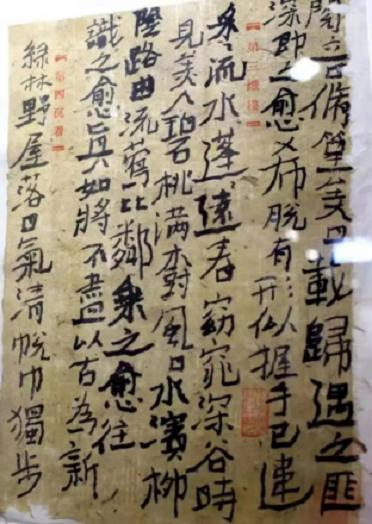 閱音修篁美曰載歸遇之匪
深即之愈希脫有形似握手已違
第三纖穠
采々流水蓬遠春窈窕深谷時
見美人碧桃滿樹風日水濱柳
陰路曲流鶯比鄰乘之愈往
識之愈真如將不盡以古為新
第四沉著
綠林野屋落日氣清脫巾獨步